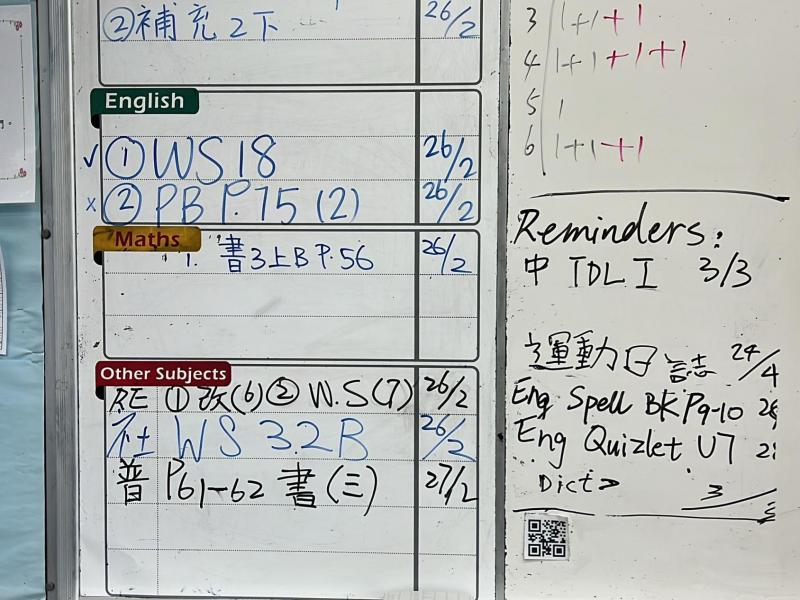 ②補充2下 26/2
English
✓ ① WS 18 26/2
x ② PB P.75 (2) 26/2
Maths
1. 書3上B P.56 26/2
Other Subjects
RE ① 改(6) ② W.S(7) 26/2
社 WS 3.2B 26/2
普 P61-62 書(三) 27/2
3 1+1+1
4 1+1+1+1
5 1
6 1+1+1
Reminders:
中 TDLI 3/3
運動日誌 24/4
Eng Spell BK P9-10
Eng Quizlet U7
Dict